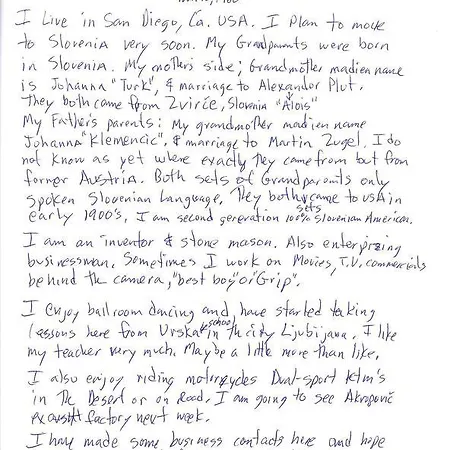 I Live in San Diego, Ca. USA. I Plan to move
to Slovenia very soon. My Grandparents were born
in Slovenia. My mothers side; Grandmother madien name
is Johanna "Turk", & marriage to Alexander Plut.
They both came from Zvirče, Slovenia "Alois"
My Father's parents: My grandmother madien name
Johanna "Klemencic", & marriage to Martin Zugel. I do
not know as yet where exactly they came from but from
former Austria. Both sets of Grandparents only
spoken Slovenian Language, They both sets came to USA in
early 1900's, I am second generation 100% Slovenian American.
I am an inventor & stone mason. Also enterprizing
businessman. Sometimes I work on Movies, T.V. commercials
behind the camera, "best boy" or "Grip".
I enjoy ballroom dancing and, have started taking
lessons here from Urska school in the city Ljubijana. I like
my teacher very much. Maybe a little more than like.
I also enjoy riding motorcycles Dual-sport Ktm's
in The Desert or on Road. I am going to see Akrapovič
factory next week.
I have made some business contacts here and hope